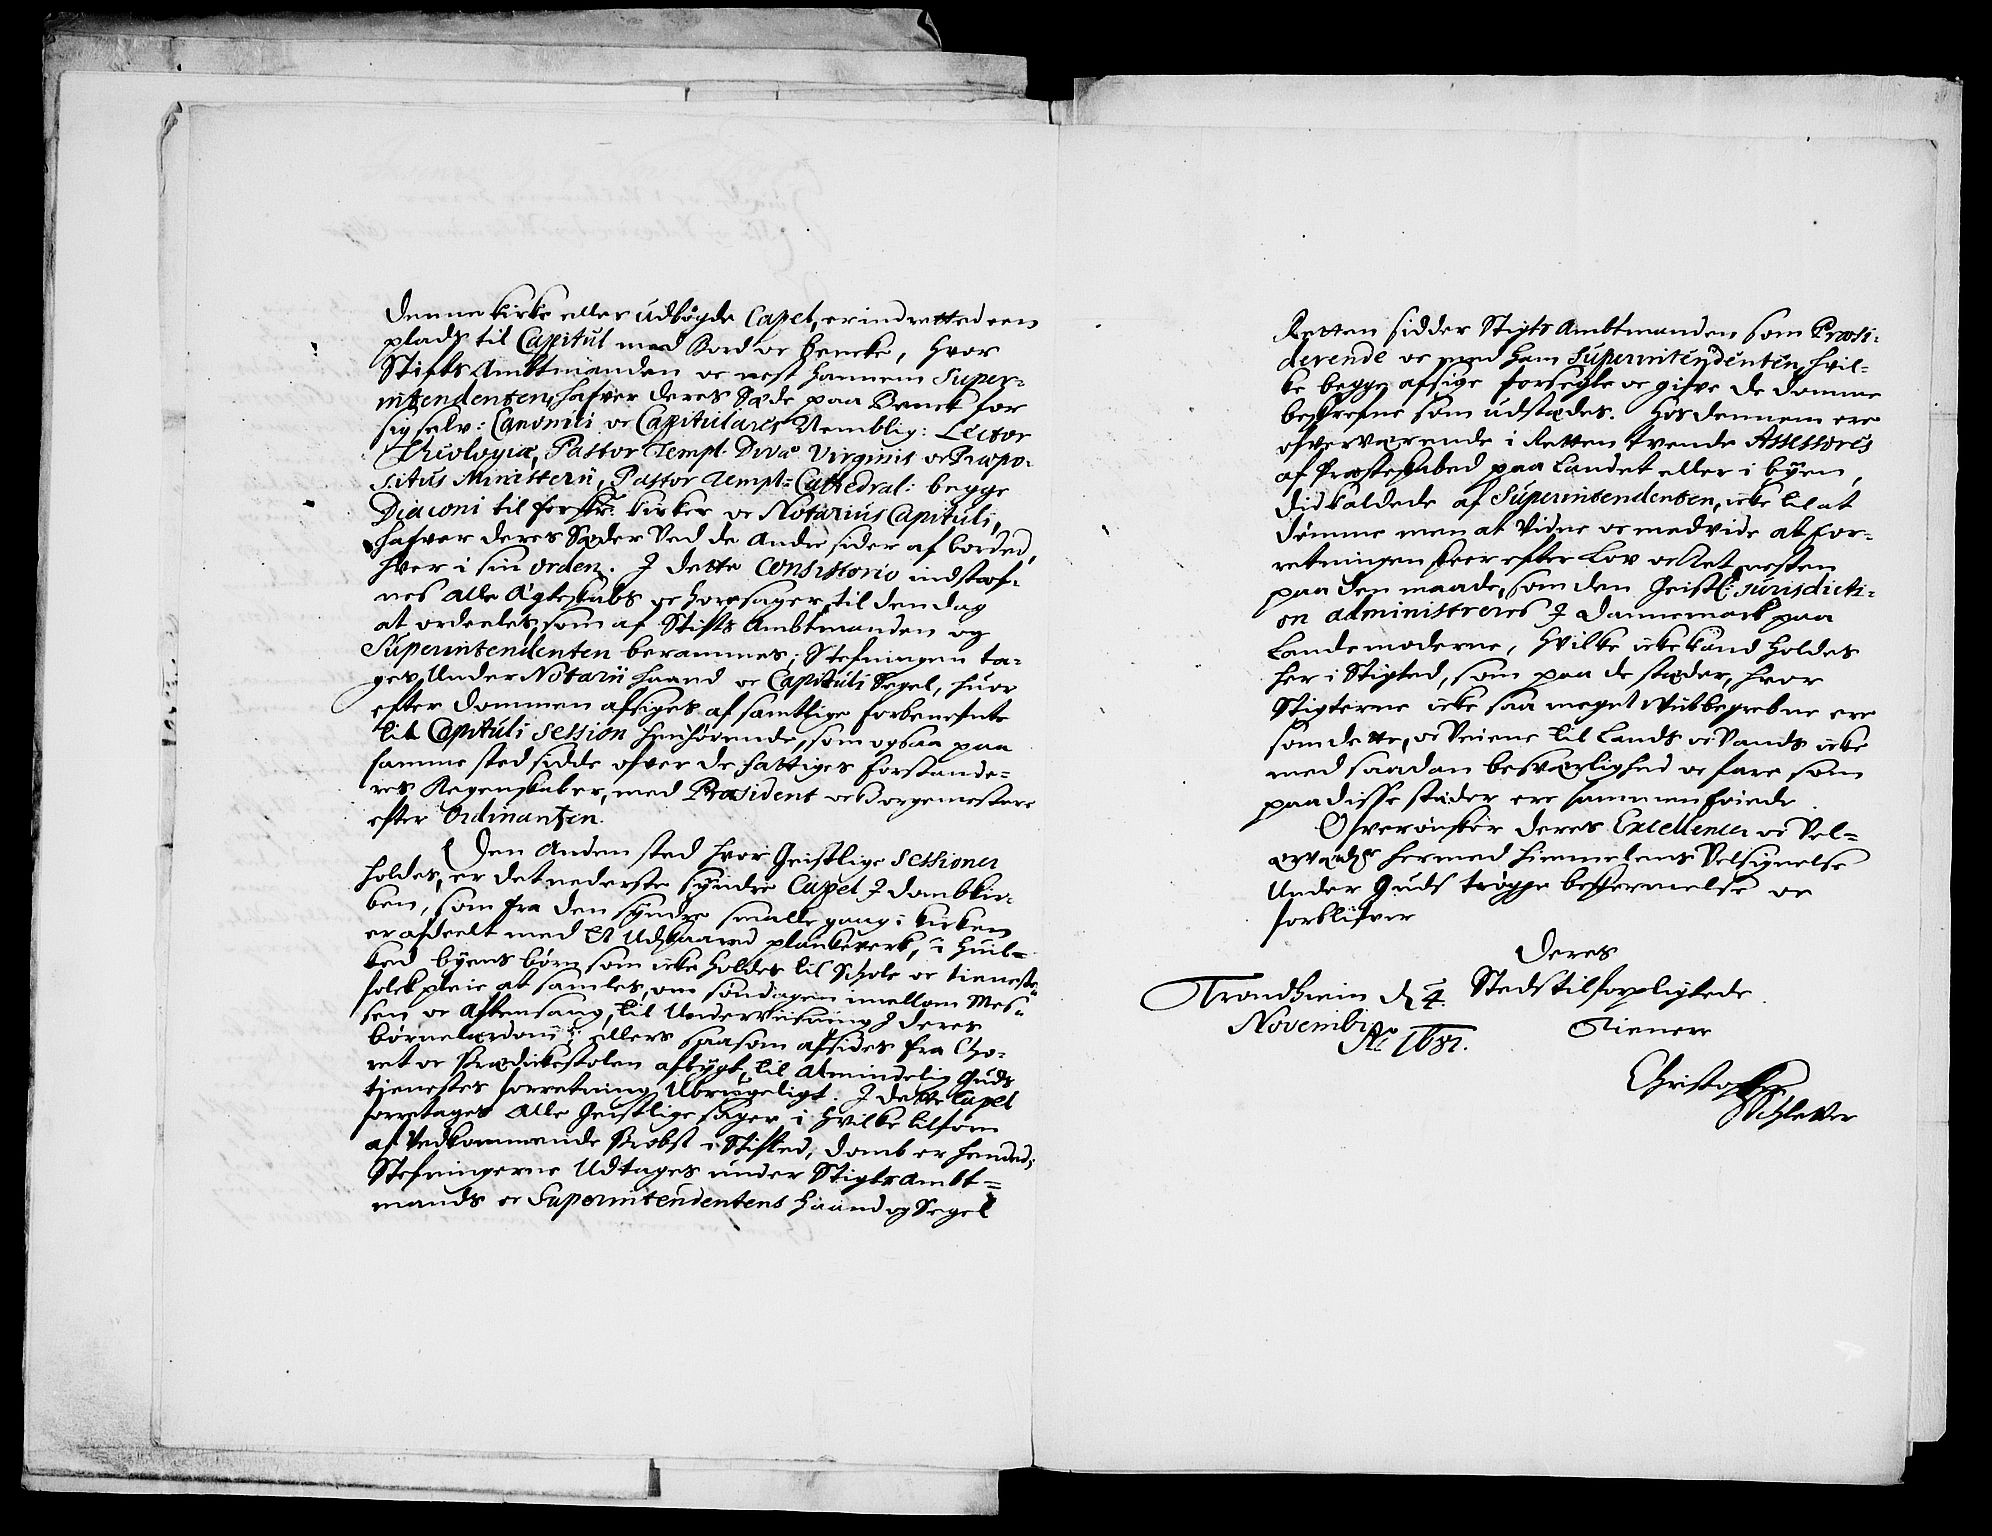 denne kirke eller udbÿgde Capel, er indretted een
plads til Capitul med Bord oc bencke, hvor
Stifts Ambtmanden oc nest hannem Super-
intendenten, hafver deres Sæde paa Benck for
sig selv: Canonici oc Capitulares Nemblig: Lector
Theologiæ, Pastor Templ. Divæ Virginis oc Præpo-
situs Ministerii, Pastor Templ: Cathedral: begge
Diaconi til forskr: kirker oc Notarius Capituli,
hafver deres Sæder Ved de Andre sider af borded,
hver i sin orden. I dette Consistorio indstæf-
nes alle Ægteskabs oc horesager, til den dag
at ordeeles, som af Stifts Ambtmanden og
Superintendenten berammes; Stefningen ta-
ges Under Notarii haand oc Capituli Segel, huor
efter dommen afsiges af samtlige forbenefnte
til Capituli Session henhørende, som ogsaa paa
samme sted sidde ofver de fattiges forstande-
res Regenskaber, med Præsident oc borgemestere
efter Ordinantzen.
Den Anden sted hvor Geistlige Sessioner
holdes, er det nederste syndre Capel I dombkir-
ken, som fra den syndre smalle gang i kirken
er afdeelt med Et Udskaared planckeverk, i huil-
ked byens børn som icke holdes til Schole oc tieneste-
folck pleie at samles, om søndagen imellom Mes-
sen oc Aftensang, til Undervisning I deres
børnelærdom; ellers saasom afsides fra Cho-
ret oc Prædickestolen afbygt, til almindelig Guds
tienestes forretning Ubrugeligt. I dette Capel
forretages alle Geistlige sager i hvilke tilforn
af Vedkommende Probst i Stifted, domb er hended;
Stefningerne Udtages under Stigts ambt-
mands oc Superintendentens haand og Segel
Retten sidder Stigts Ambtmanden som Præsi-
derende oc med ham Superintendenten, hvil-
ke begge afsige forsegle oc gifve de domme
beskrefne som udstædes. hos dennem ere
ofverværende i Retten tvende Assessores
af Præsteskabed paa Landet eller i bÿen,
did kaldede af Superintendenten, icke til at
dømme men at Vidne oc medvide at for-
retningen skeer efter Lov oc Ret, nesten
paa den maade, som den Geistl: jurisdicti-
on administreres I Dannemark paa
Landemoderne, hvilke icke kand holdes
her i Stigted, som paa de stæder, hvor
Stigterne icke saa meget Vitbegrebne ere
som dette, oc Veiene til Lands oc Vands icke
med saadan besværlighed oc fare som
paa disse stæder ere sammenføiede.
Ofverønsker deres Excellencer oc Vel-
hermed himmelens Velsignelse
Under Guds trøgge beskermelse oc
forblifver
Deres
Trondhiem d. 4.
Novembr
Ao 1681.
Stedstilforpligtede
Tienere
Christoffer
Schletter